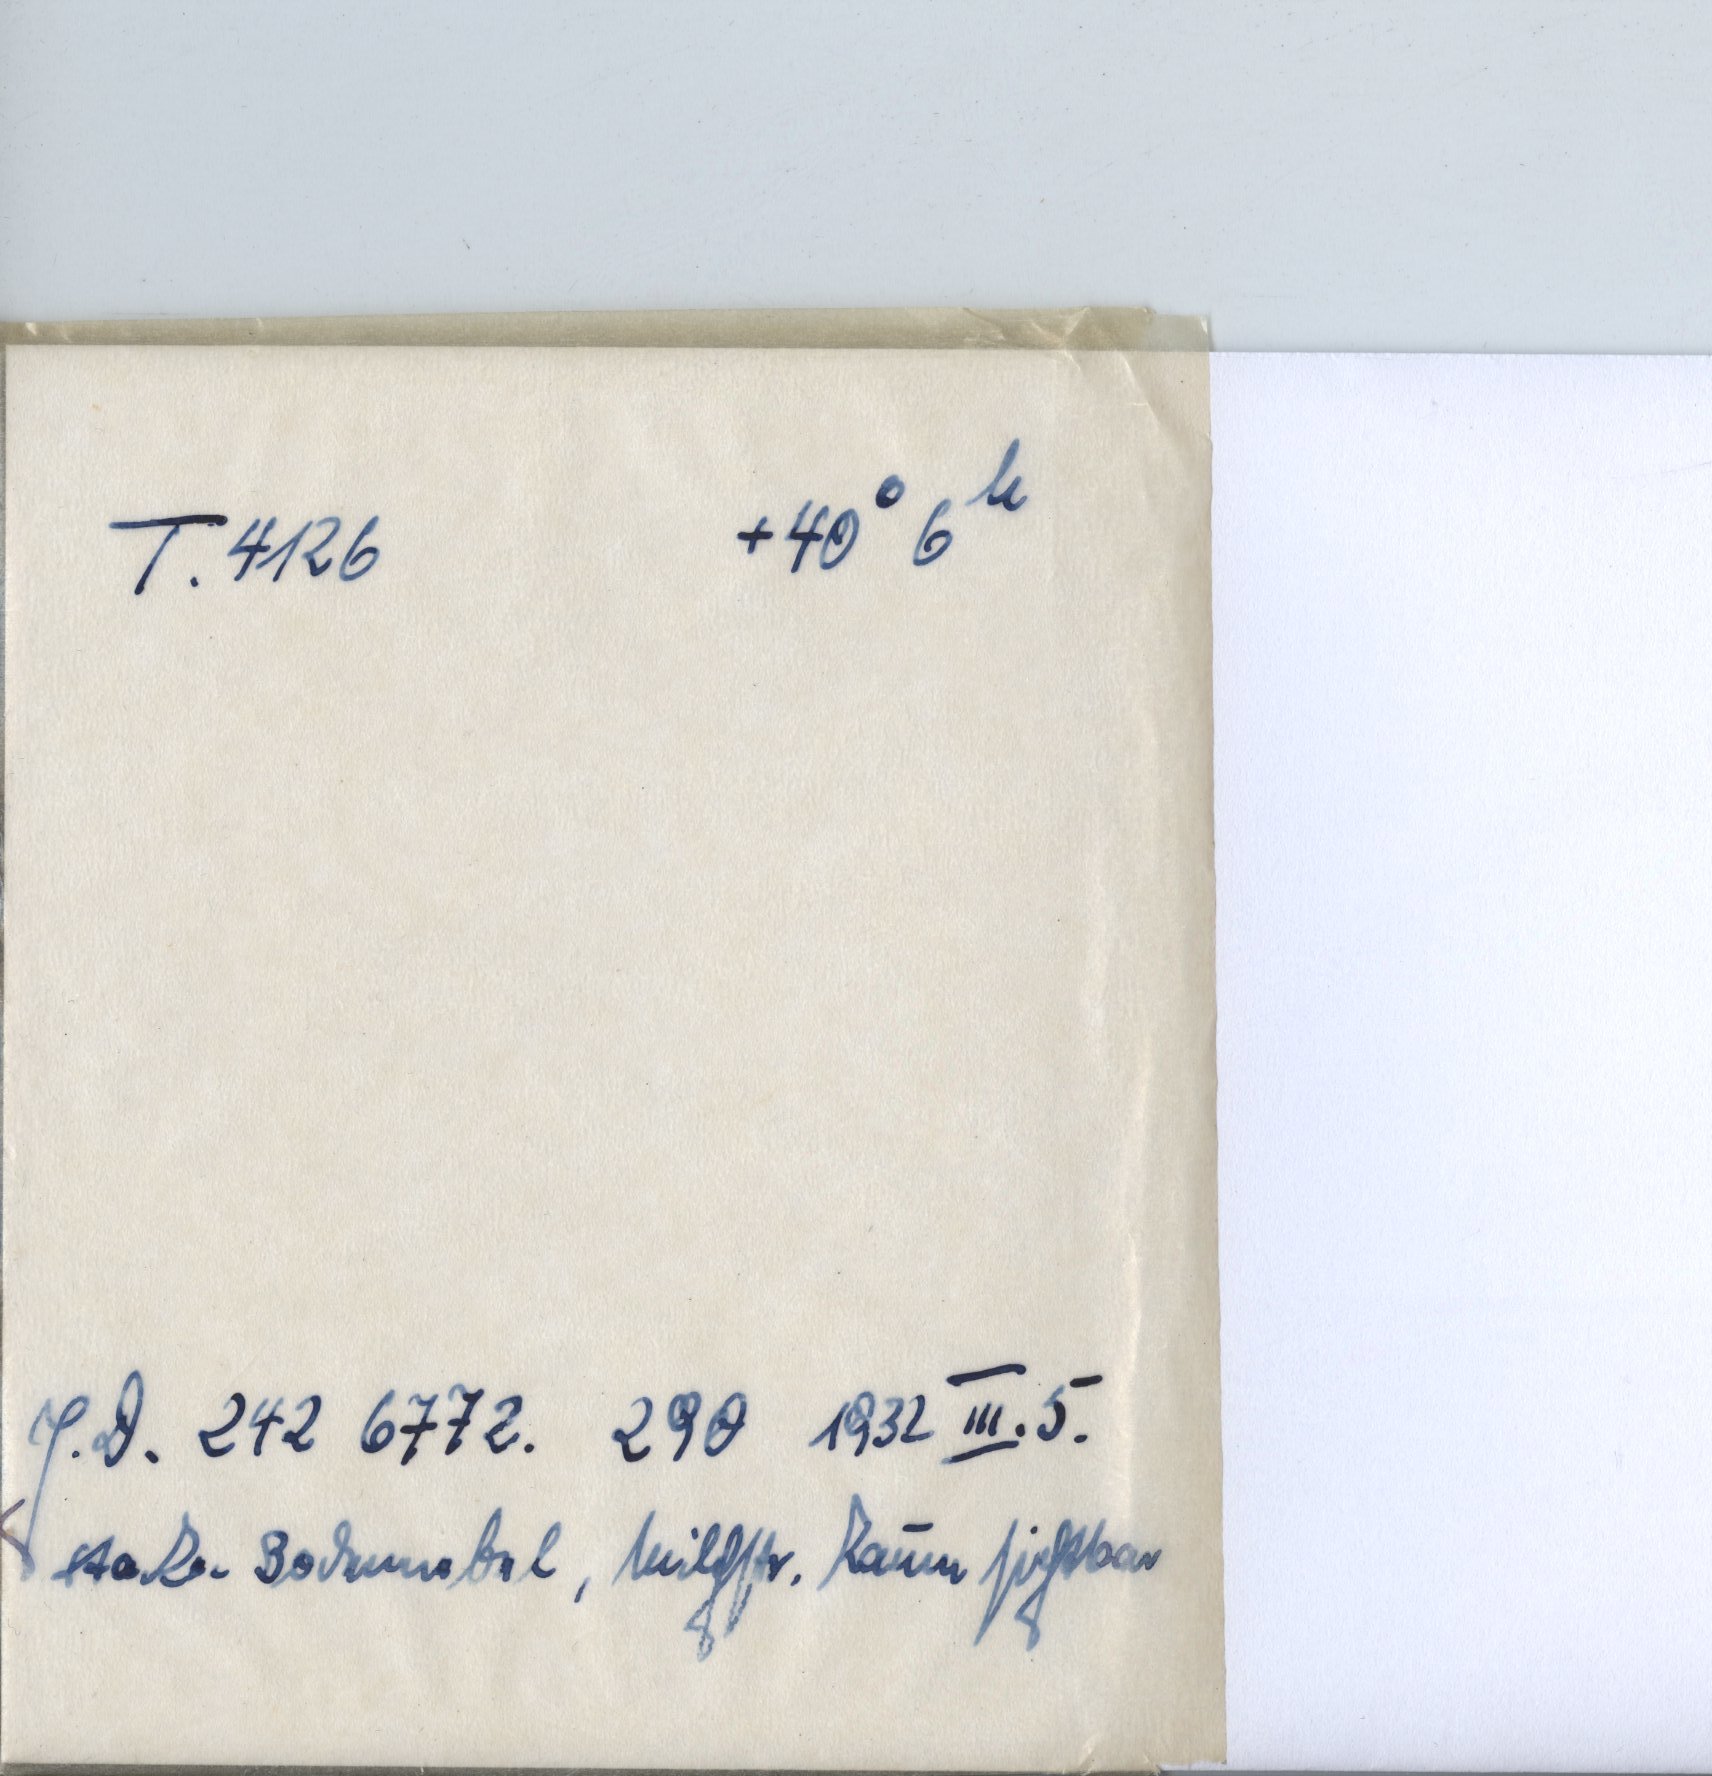 T. 4126 +40° 6ʰ
J.D. 242 6772. 290 1932 III. 5.
starker Bodennebel, Milchstr. kaum sichtbar